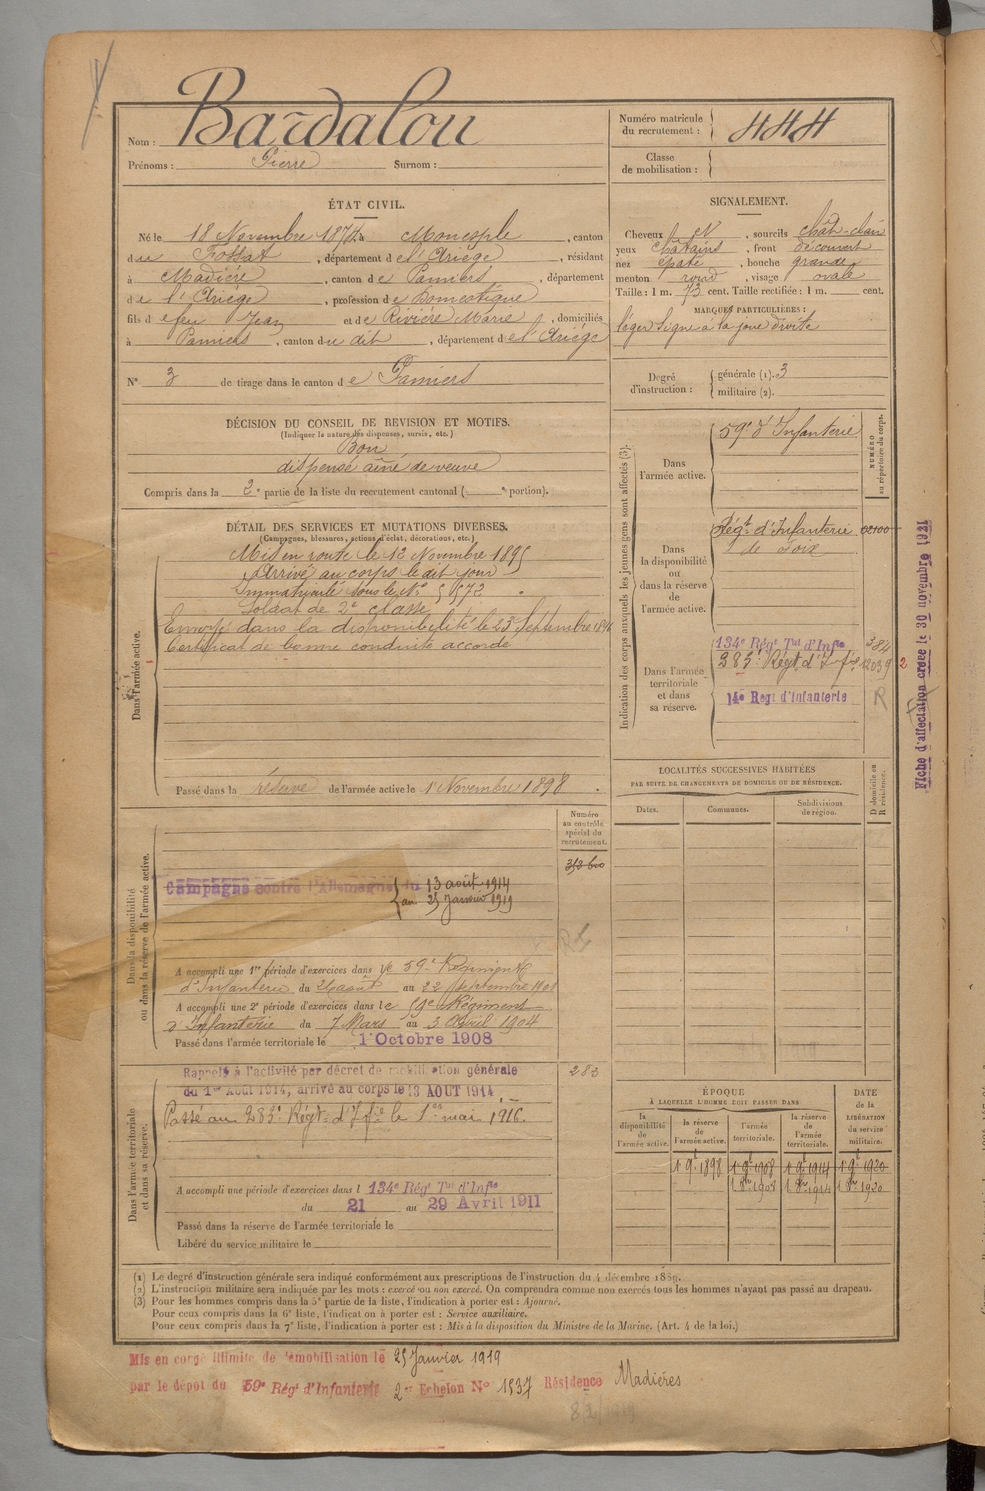 Nom : Bardalou
Prénoms : Pierre Surnom :
Numéro matricule du recrutement : 444
Classe de mobilisation :
ÉTAT CIVIL.
Né le 18 Novembre 1874 à Monesple, canton
du Fossat, département de l'Ariège, résidant
à Madière, canton de Pamiers, département
de l'Ariège, profession de Domestique
fils de feu Jean et de Rivière Marie, domiciliés
à Pamiers, canton du dit, département de l'Ariège
N° 3 de tirage dans le canton de Pamiers
SIGNALEMENT.
Cheveux N, sourcils chât-clair
yeux châtains, front découvert
nez épaté, bouche grande
menton rond, visage ovale
Taille : 1 m. 73 cent. Taille rectifiée : 1 m. cent.
MARQUES PARTICULIÈRES :
léger signe à la joue droite
Degré d'instruction : générale (1). 3
militaire (2).
DÉCISION DU CONSEIL DE REVISION ET MOTIFS.
(Indiquer la nature des dispenses, sursis, etc.)
Bon
dispensé aîné de veuve
Compris dans la 2e partie de la liste du recrutement cantonal ( e portion).
DÉTAIL DES SERVICES ET MUTATIONS DIVERSES.
(Campagnes, blessures, actions d'éclat, décorations, etc.)
Dans l'armée active.
Mis en route le 12 Novembre 1895
Arrivé au corps le dit jour
Immatriculé sous le N°
Soldat de 2e classe
Envoyé dans la disponibilité le 23 Septembre 1896
Certificat de bonne conduite accordé
Passé dans la réserve de l'armée active le 1er Novembre 1898.
Indication des corps auxquels les jeunes gens sont affectés (3).
NUMÉRO au répertoire du corps.
Dans l'armée active.
59e d'Infanterie
Dans la disponibilité ou dans la réserve de l'armée active.
Régt d'Infanterie 02100
de Foix
Dans l'armée territoriale et dans sa réserve.
134e Régt Tal d'Infie 384
283e Régt d'Infie 12039
14e Regt d'Infanterie R
Fiche d'affectation créée le 30 novembre 1921
LOCALITÉS SUCCESSIVES HABITÉES
PAR SUITE DE CHANGEMENTS DE DOMICILE OU DE RÉSIDENCE.
Dates. Communes. Subdivisions de région. D domicile ou R résidence.
Dans la disponibilité ou dans la réserve de l'armée active.
Numéro au contrôle spécial du recrutement.
Campagne contre l'Allemagne du 13 août 1914
au 25 janvier 1919
A accompli une 1re période d'exercices dans le 59e Régiment
d'Infanterie du 26 août au 22 septembre 1901
A accompli une 2e période d'exercices dans le 59e Régiment
d'Infanterie du 7 Mars au 3 Avril 1904
Passé dans l'armée territoriale le 1 Octobre 1908
Dans l'armée territoriale et dans sa réserve.
Rappelé à l'activité par décret de mobilisation générale
du 1er Août 1914, arrivé au corps le 13 AOUT 1914.
283
Passé au 283e Régt d'Infie le 1er mai 1916.
A accompli une période d'exercices dans l 134e Régt Tal d'Infie
du 21 au 29 Avril 1911
Passé dans la réserve de l'armée territoriale le
Libéré du service militaire le
ÉPOQUE
À LAQUELLE L'HOMME DOIT PASSER DANS
la disponibilité de l'armée active.
la réserve de l'armée active.
l'armée territoriale.
la réserve de l'armée territoriale.
DATE de la LIBÉRATION du service militaire.
1 9e 1898 1 9e 1908 1 9e 1914 1 9e 1920
1 8re 1908 1 8re 1914 1 8re 1920
(1) Le degré d'instruction générale sera indiqué conformément aux prescriptions de l'instruction du 4 décembre 1889.
(2) L'instruction militaire sera indiquée par les mots : exercé ou non exercé. On comprendra comme non exercés tous les hommes n'ayant pas passé au drapeau.
(3) Pour les hommes compris dans la 5e partie de la liste, l'indication à porter est : Ajourné.
Pour ceux compris dans la 6e liste, l'indication à porter est : Service auxiliaire.
Pour ceux compris dans la 7e liste, l'indication à porter est : Mis à la disposition du Ministre de la Marine. (Art. 4 de la loi.)
Mis en congé illimité de démobilisation le 25 Janvier 1919
par le dépôt du 59e Régt d'Infanterie 2e Echelon N° 1537 Résidence Madières